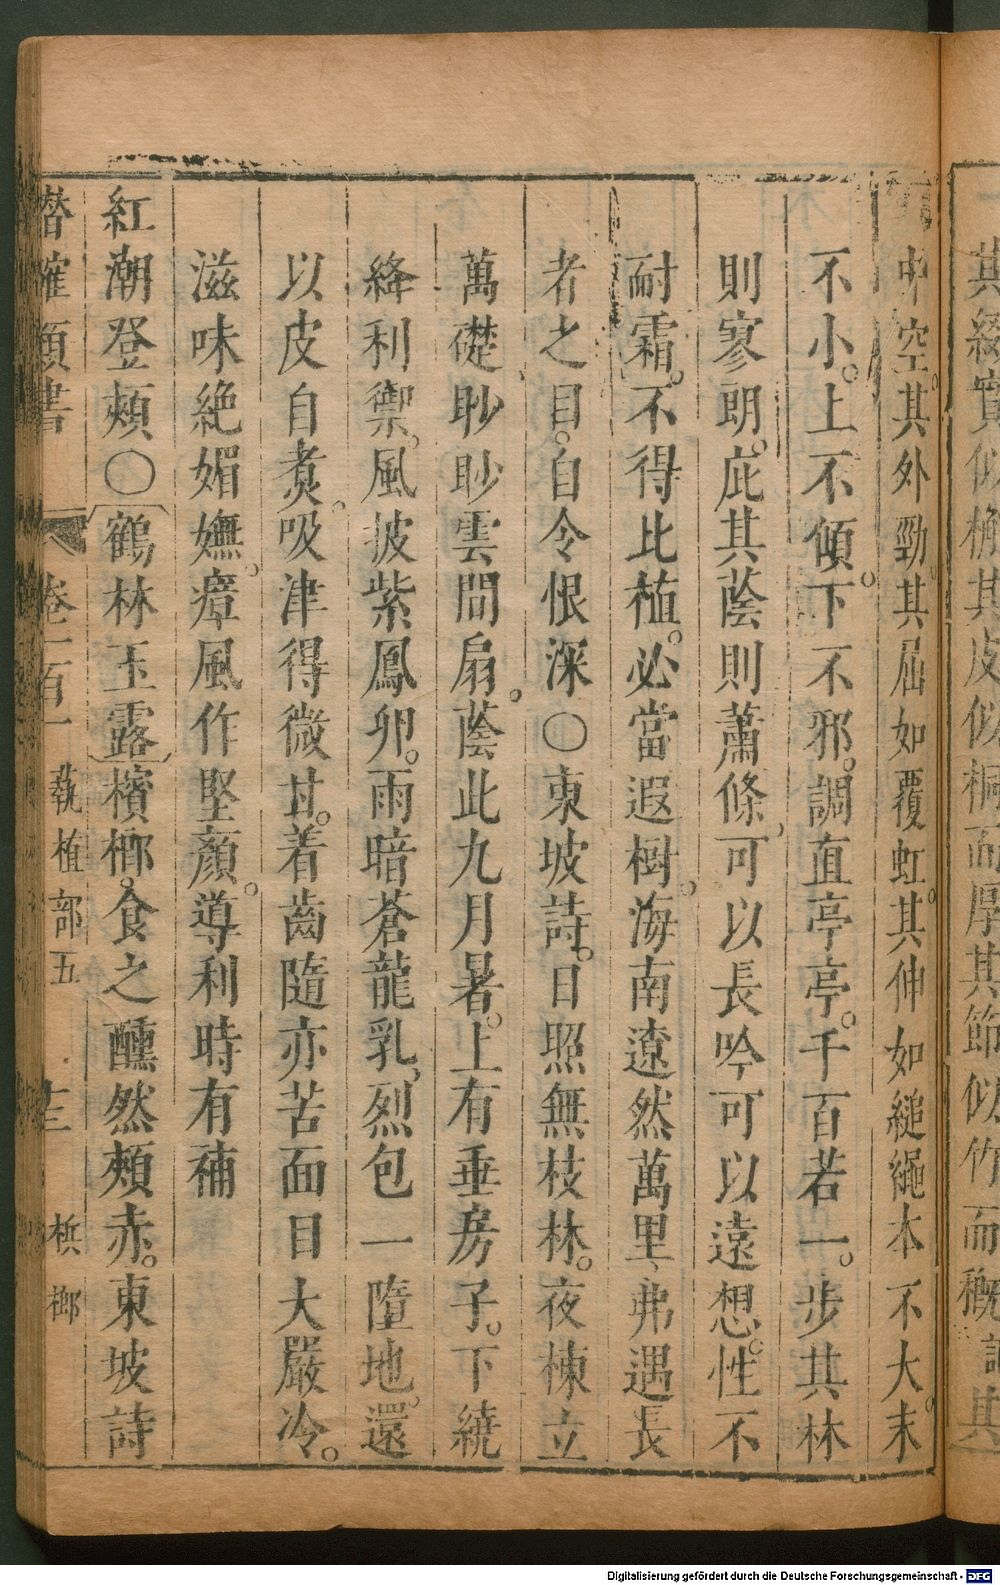 其綏實似桷其皮似桐而厚其節似竹而穊
中空其外勁其屈如覆虹其伸如縋繩本不大末
不小上不傾下不邪調直亭亭千百若一步其林
則寥朗庇其蔭則蕭條可以長吟可以遠想性不
耐霜不得比植必當遐樹海南遼然萬里弗遇長
者之目自令恨深○東坡詩日照無枝林夜棟立
萬礎眇眇雲間扇蔭此九月暑上有垂房子下繞
絳利禦風披紫鳳卵雨暗蒼龍乳烈包一墮地還
以皮自煑吸津得微甘着齒隨亦苦面目大嚴冷
滋味絶媚嫵瘴風作堅顏導利時有補
紅潮登頰○鶴林玉露檳榔食之醺然頰赤東坡詩
潛確類書 卷一百一 蓺植部五 十三 檳榔
Digitalisierung gefördert durch die Deutsche Forschungsgemeinschaft - DFG